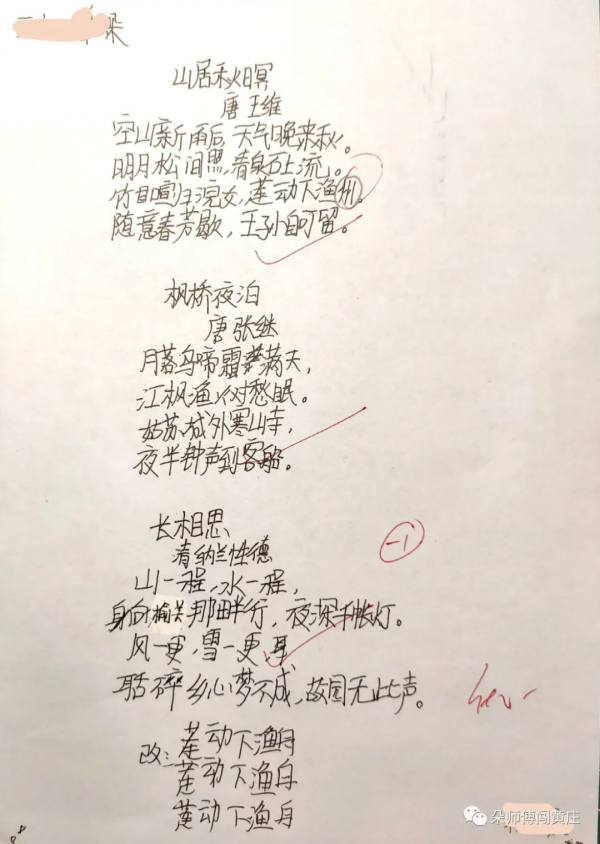 朵
山居秋暝
唐 王维
空山新雨后,天气晚来秋。
明月松间照,清泉石上流。
竹喧归浣女,莲动下渔州。
随意春芳歇,王孙自可留。
枫桥夜泊
唐 张继
月落乌啼霜满天,
江枫渔火对愁眠。
姑苏城外寒山寺,
夜半钟声到客船。
-1
长相思
清纳兰性德
山一程,水一程,
身向榆关那畔行,夜深千帐灯。
风一更,雪一更,
聒碎乡心梦不成,故园无此声。
改:莲动下渔舟
莲动下渔舟
莲动下渔舟
朵师傅闯黄庄